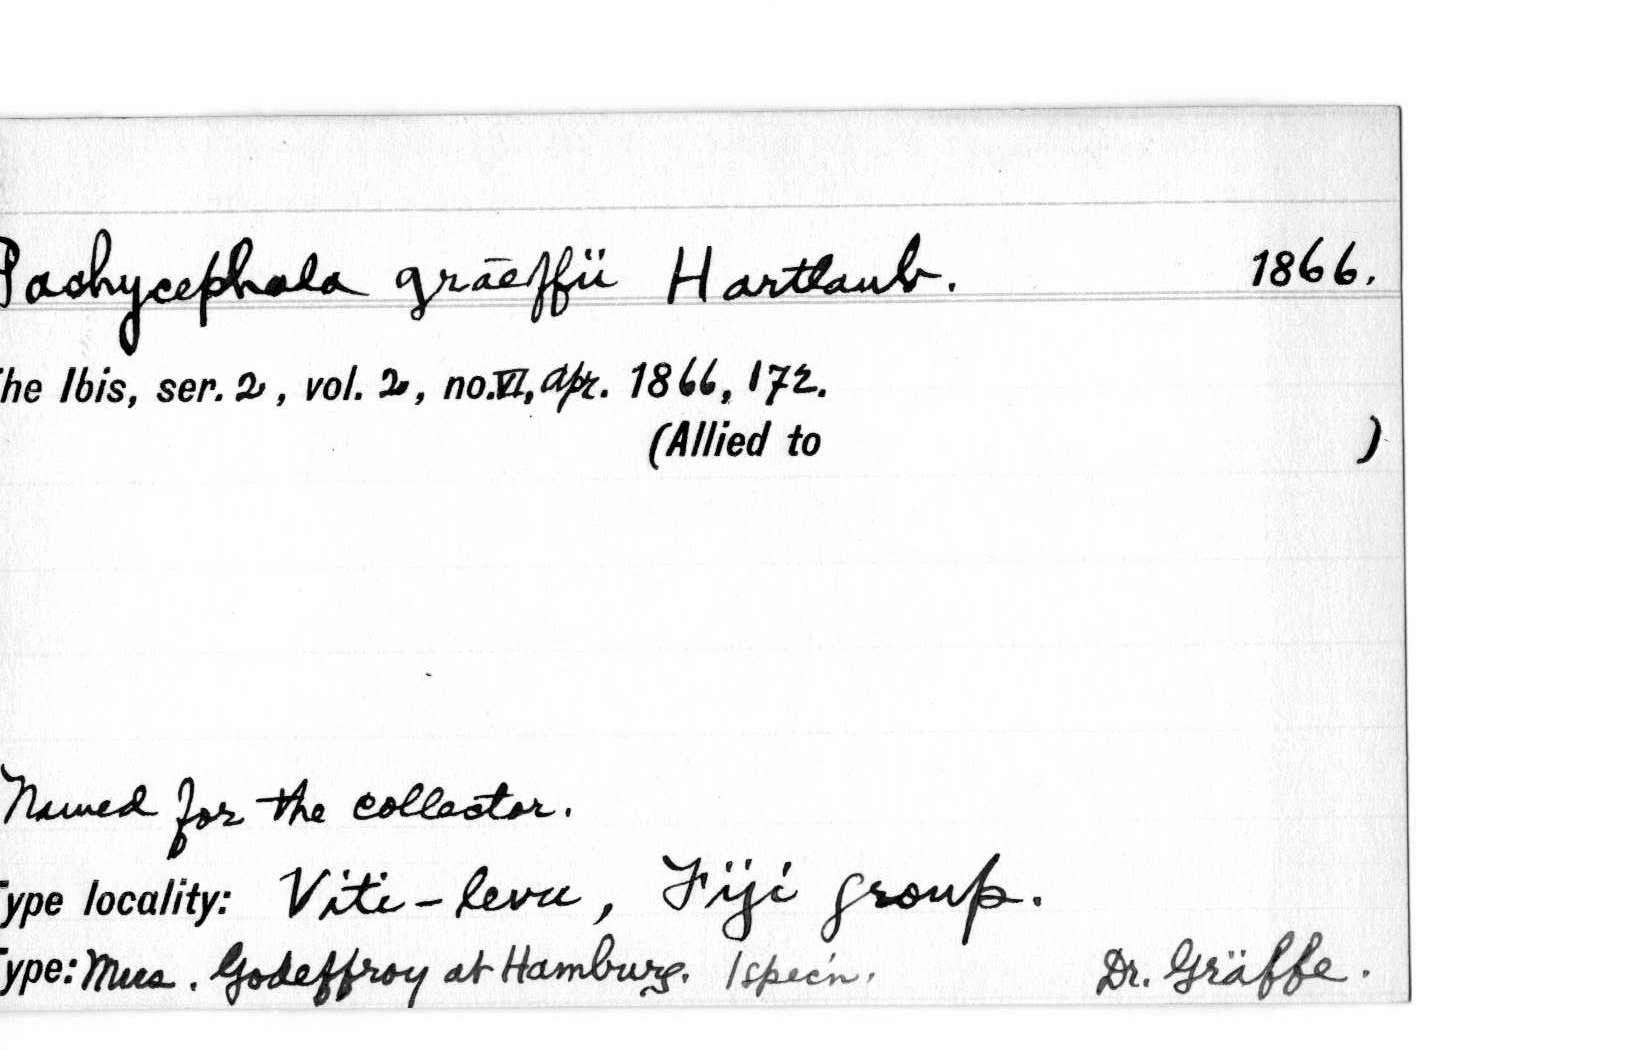 Pachycephala gräeffii Hartlaub. 1866.
he Ibis, ser. 2, vol. 2, no. VI, Apr. 1866, 172.
(Allied to )
Named for the collector.
ype locality: Viti-levu, Fiji group.
ype: Mus. Godeffroy at Hamburg. 1 spec'n. Dr. Gräffe.